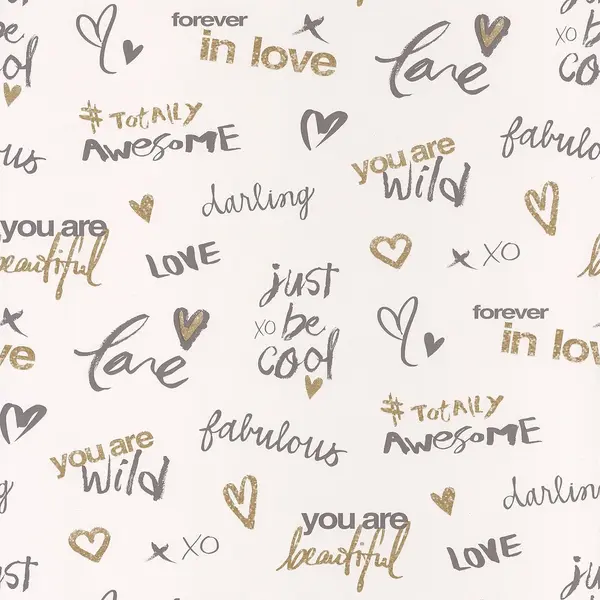 be
cool
forever
in love
Love
xo be
co
#TotAlly
AwesoME
you are
wild
fabulo
us
darling
you are
beautiful
LOVE
xo
just
xo be
cool
forever
in lov
ve
Love
#TotAlly
AwesoME
you are
wild
fabulous
darlin
g
you are
beautiful
LOVE
xo
st
just
be